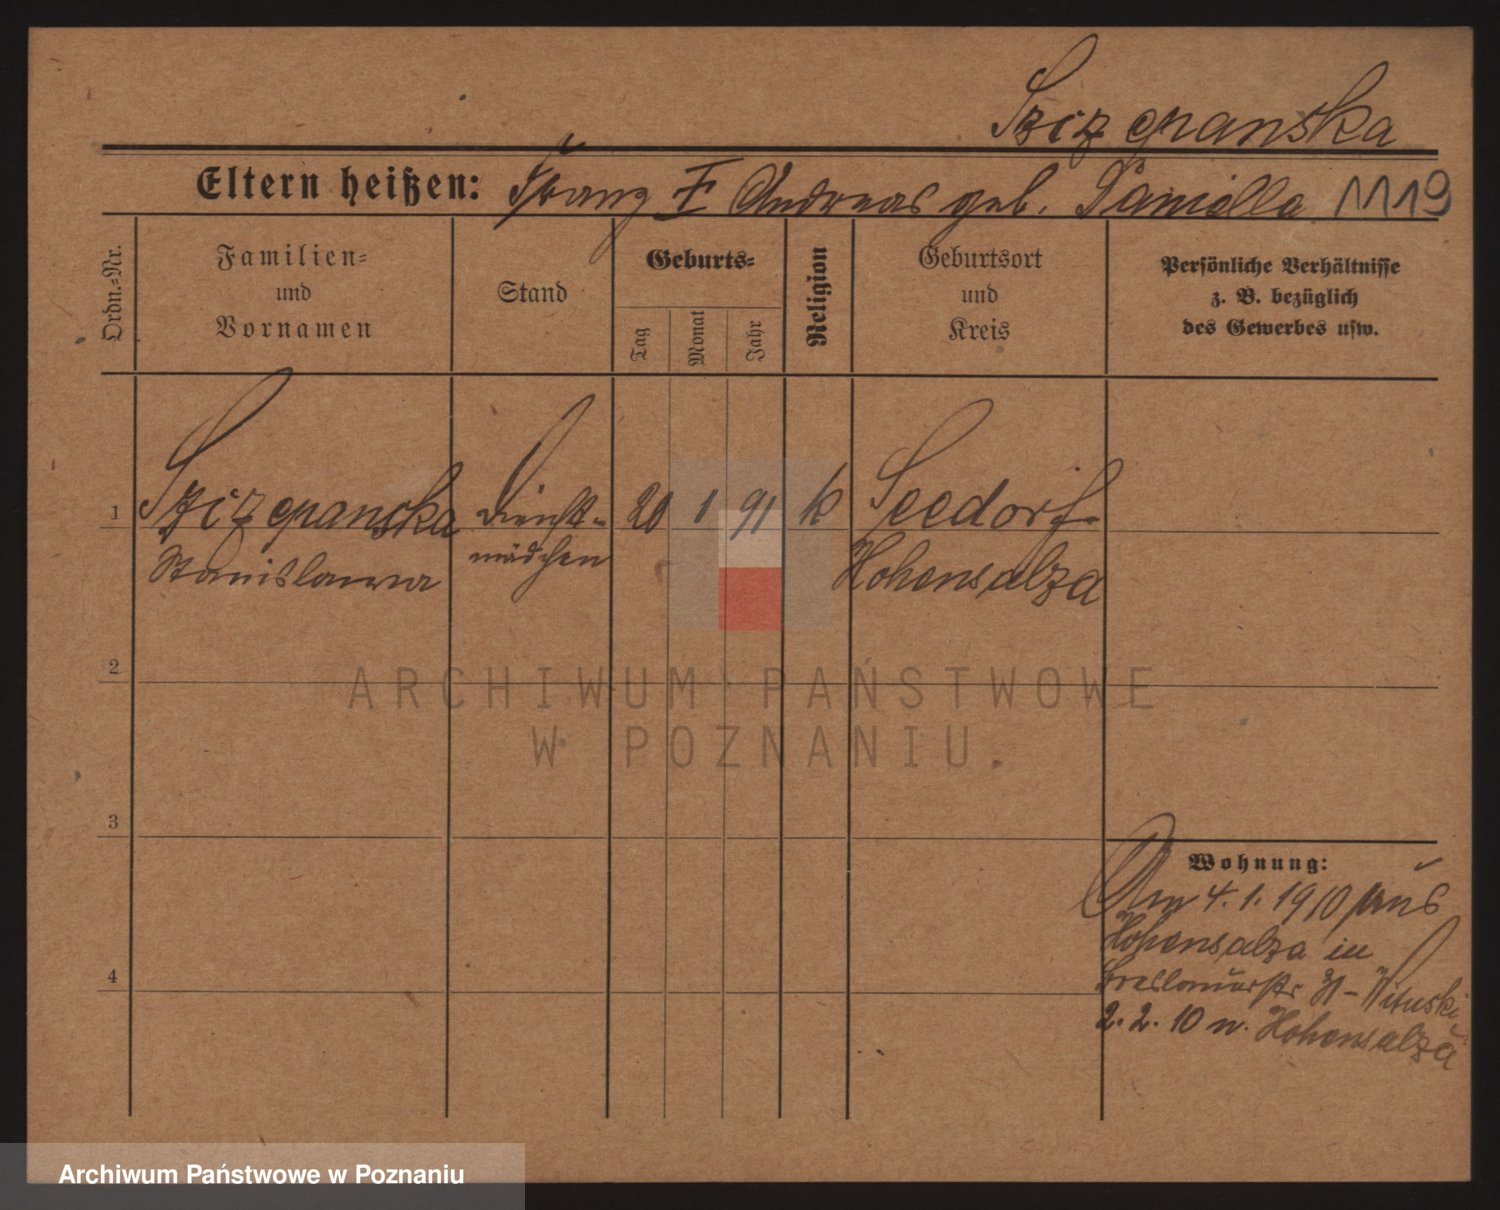 Szczepanska
Eltern heißen: Franz I Andreas geb. 1119
Ordn.-Nr.
Familien-
und
Vornamen
Stand
Geburts-
Tag
Monat
Jahr
Religion
Geburtsort
und
Kreis
Persönliche Verhältnisse
z. B. bezüglich
des Gewerbes usw.
1 Szczepanska Dienst- 20 1 91 k Seedorf
Stanislawa mädchen Hohensalza
2
ARCHIWUM PAŃSTWOWE
W POZNANIU
3
Wohnung:
Am 4. 1. 1910 aus
Hohensalza in
Breslauerstr Wituski
4
2. 2. 10 n. Hohensalza
Archiwum Państwowe w Poznaniu